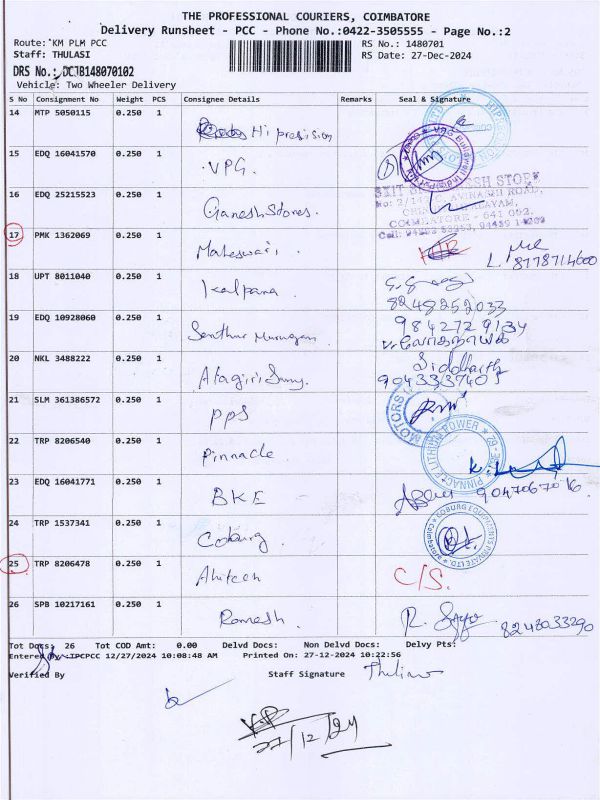 THE PROFESSIONAL COURIERS, COIMBATORE
Delivery Runsheet - PCC - Phone No.:0422-3505555 - Page No.:2
Route: KM PLM PCC
RS No.: 1480701
Staff: THULASI
RS Date: 27-Dec-2024
DRS No.: DCJB148070102
Vehicle: Two Wheeler Delivery
S No Consignment No Weight PCS Consignee Details Remarks Seal & Signature
14 MTP 5050115 0.250 1 Hi presision
15 EDQ 16041570 0.250 1 VPG.
16 EDQ 25215523 0.250 1 Ganesh Stores.
COIMBATORE - 641 062.
17 PMK 1362069 0.250 1 Maheswari.
8778714600
18 UPT 8011040 0.250 1 Kalpana.
8248252033
19 EDQ 10928060 0.250 1 Senthur Murugan.
9842729134
20 NKL 3488222 0.250 1 Alagiri Samy. Siddharth
9043337405
21 SLM 361386572 0.250 1 PPS
MOTORS
22 TRP 8206540 0.250 1 Pinnacle.
PINNACLE LITHIUM POWER
23 EDQ 16041771 0.250 1 BKE 9047067016.
24 TRP 1537341 0.250 1 Coburg.
COBURG EQUIPMENTS PRIVATE LTD.
25 TRP 8206478 0.250 1 C/S.
26 SPB 10217161 0.250 1 Ramesh.
8248033290
Tot Docs: 26 Tot COD Amt: 0.00 Delvd Docs: Non Delvd Docs: Delvy Pts:
Entered By :IPCPCC 12/27/2024 10:08:48 AM Printed On: 27-12-2024 10:22:56
Verified By Staff Signature
27/12/24